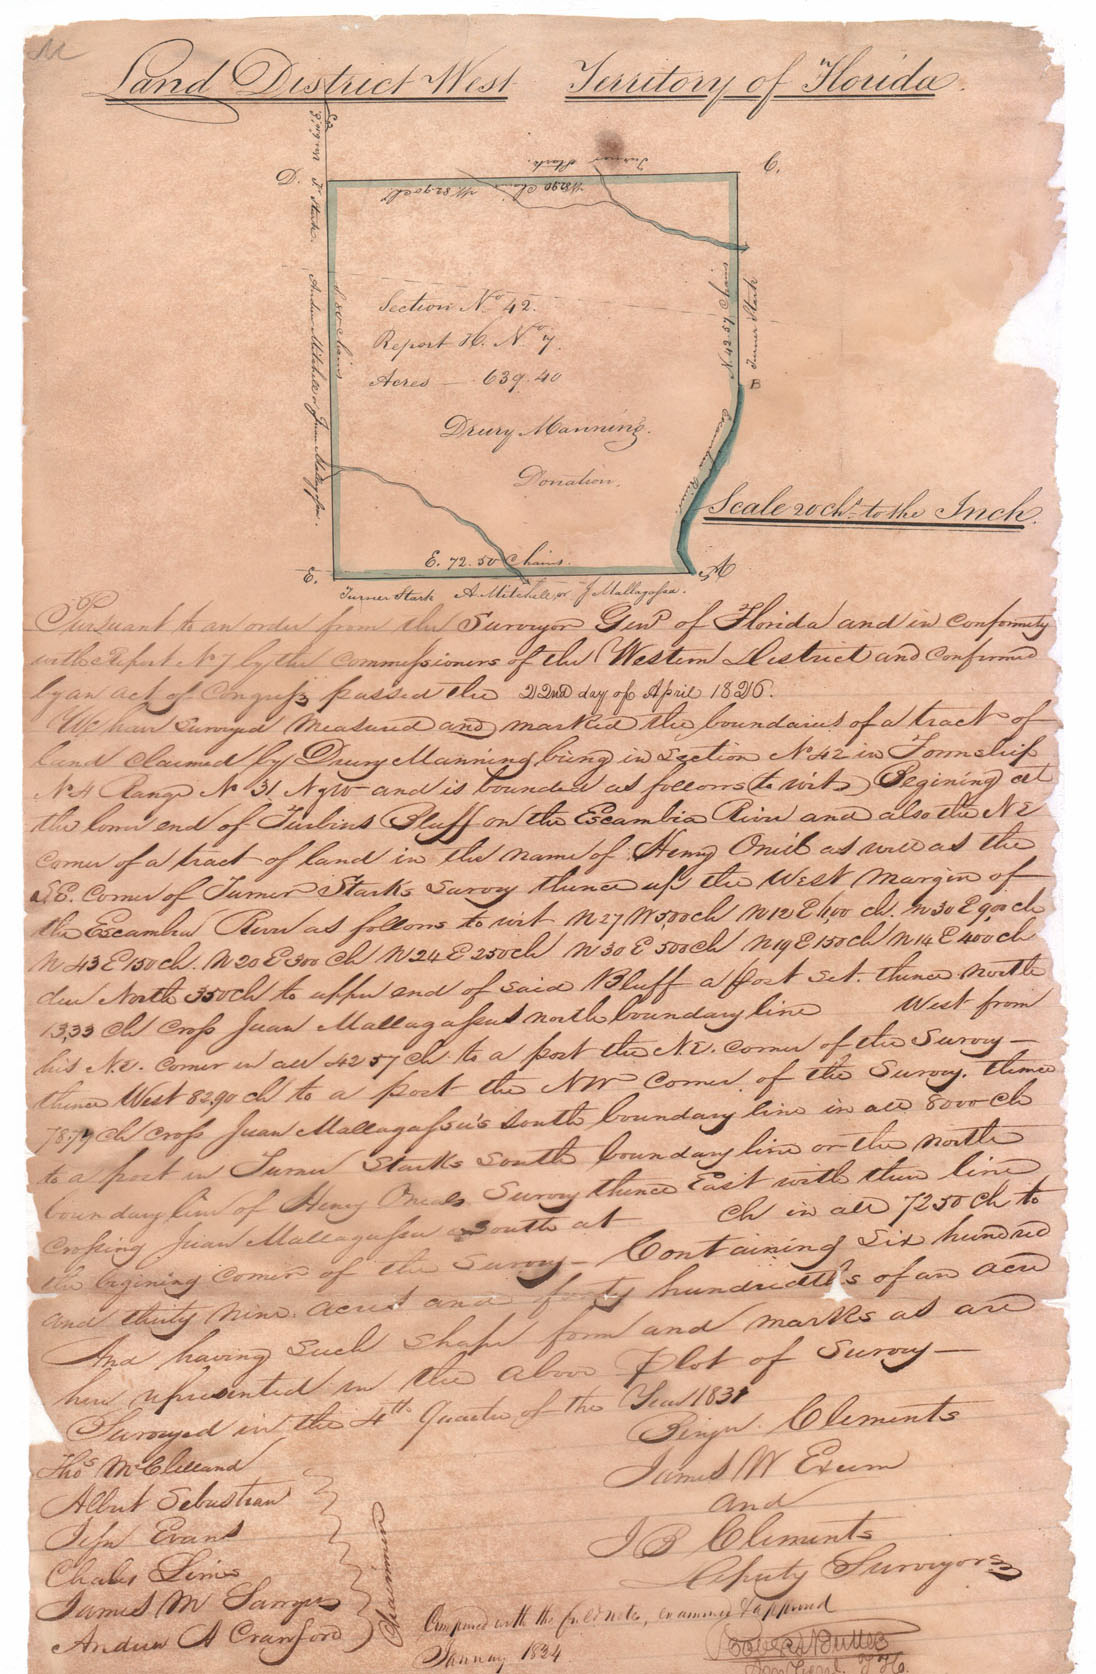 Land District West Territory of Florida.
D.
C.
Turner Stark.
W 82.90 Ch
S 80 Chains
N 42.57 Chains
Turner Stark
B
Section No 42.
Report H. No 7.
Acres — 639.40
Drury Manning.
Donation.
Escambia River
Scale 20 chs to the Inch.
E. 72.50 Chains.
E.
A
Turner Stark A. Mitchell or J Mallagosa.
Andrew Mitchell or Juan Mallagosa.
Pursuant to an order from the Surveyor Genl of Florida and in conformity
with Report No 7 by the commissioners of the Western District and confirmed
by an act of Congress passed the 22nd day of April 1826.
We have surveyed measured and marked the boundaries of a tract of
land claimed by Drury Manning being in Section No 42 in Township
No 4 Range No 31 N & W and is bounded as follows (to wit) Begining at
the lower end of Turbins Bluff on the Escambia River and also the N E
corner of a tract of land in the name of Henry Oneil as well as the
S.E. corner of Turner Starks Survey thence up the West margin of
the Escambia River as follows to wit N 27 W 5,00 ch N 12 E 11,00 ch. N 30 E 9,00 ch
N 43 E 150 ch. N 20 E 300 ch N 24 E 250 ch N 30 E 500 ch N 19 E 150 ch N 14 E 400 ch
due North 350 ch to upper end of said Bluff a post set. thence north
13,33 ch cross Juan Mallagosas north boundary line West from
his N.E. corner in all 42 57 ch to a post the N.E. corner of the Survey —
thence West 82,90 ch to a post the NW Corner of the Survey. thence
78.79 ch cross Juan Mallagosa's South boundary line in all 8000 ch
to a post in Turner Starks South boundary line or the north
boundary line of Henry Oneals Survey thence East with their line
crossing Juan Mallagosa South at ch in all 7250 ch to
the begining corner of the Survey — Containing Six hundred
and thirty nine acres and forty hundredths of an acre
And having such shape form and marks as are
here represented in the above Plot of Survey —
Surveyed in the 4th Quarter of the Year 1831
Benjn. Clements
James W Exum
and
J B Clements
Deputy Surveyors
Thos McClelland
Albert Sebastian
Evans
Charles Sims
James M
Andrew A Crawford
Chainmen
Compared with the field notes, examined & approved
January 1834
Robert Butler